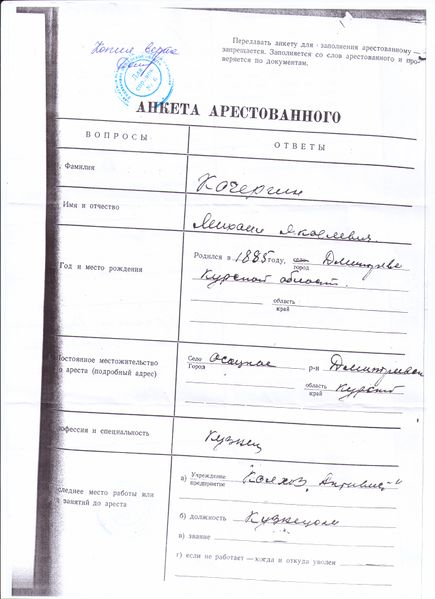 Копия верна
Передавать анкету для заполнения арестованному —
запрещается. Заполняется со слов арестованного и про-
веряется по документам.
АНКЕТА АРЕСТОВАННОГО
ВОПРОСЫ
ОТВЕТЫ
Фамилия
Кочергин
Имя и отчество
Михаил Яковлевич
Год и место рождения
Родился в 1885 году, село город Дмитриев
Курской области.
область
край
Постоянное местожительство
до ареста (подробный адрес)
Село
Город
р-н
область
край
Курской
Профессия и специальность
Кузнец
Последнее место работы или
род занятий до ареста
а) Учреждение
предприятие
"Колхоз
б) должность Кузнецом
в) звание
г) если не работает — когда и откуда уволен